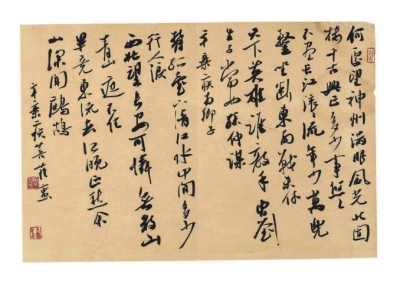 何處望神州滿眼風光北固
樓千古興亡多少事悠悠
不盡長江滾滾流年少萬兜
鍪坐斷東南戰未休
天下英雄誰敵手曹劉
生子當如孫仲謀
辛棄疾南鄉子
鬱孤臺下清江水中間多少
行人淚
西北望長安可憐無數山
青山遮不住
畢竟東流去江晚正愁余
山深聞鷓鴣
辛棄疾菩薩蠻